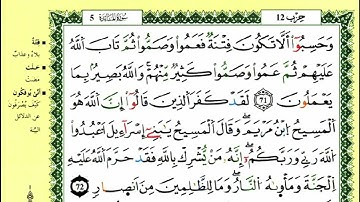 سُورَةُ المَائِدَةِ 5
حِزْب 12
وَحَسِبُوٓا۟ أَلَّا تَكُونَ فِتْنَةٌ فَعَمُوا۟ وَصَمُّوا۟ ثُمَّ تَابَ ٱللَّهُ
عَلَيْهِمْ ثُمَّ عَمُوا۟ وَصَمُّوا۟ كَثِيرٌ مِّنْهُمْ وَٱللَّهُ بَصِيرٌۢ بِمَا
يَعْمَلُونَ 71 لَقَدْ كَفَرَ ٱلَّذِينَ قَالُوٓا۟ إِنَّ ٱللَّهَ هُوَ
ٱلْمَسِيحُ ٱبْنُ مَرْيَمَ وَقَالَ ٱلْمَسِيحُ يَٰبَنِىٓ إِسْرَٰٓءِيلَ ٱعْبُدُوا۟
ٱللَّهَ رَبِّى وَرَبَّكُمْ إِنَّهُۥ مَن يُشْرِكْ بِٱللَّهِ فَقَدْ حَرَّمَ ٱللَّهُ عَلَيْهِ
ٱلْجَنَّةَ وَمَأْوَىٰهُ ٱلنَّارُ وَمَا لِلظَّٰلِمِينَ مِنْ أَنصَارٍ 72
فِتْنَةٌ
بلاء وعذاب
خَلَتْ
مضت
أَنَّىٰ يُؤْفَكُونَ
كيف يُصْرفون
عن الدلائل
البيّنة